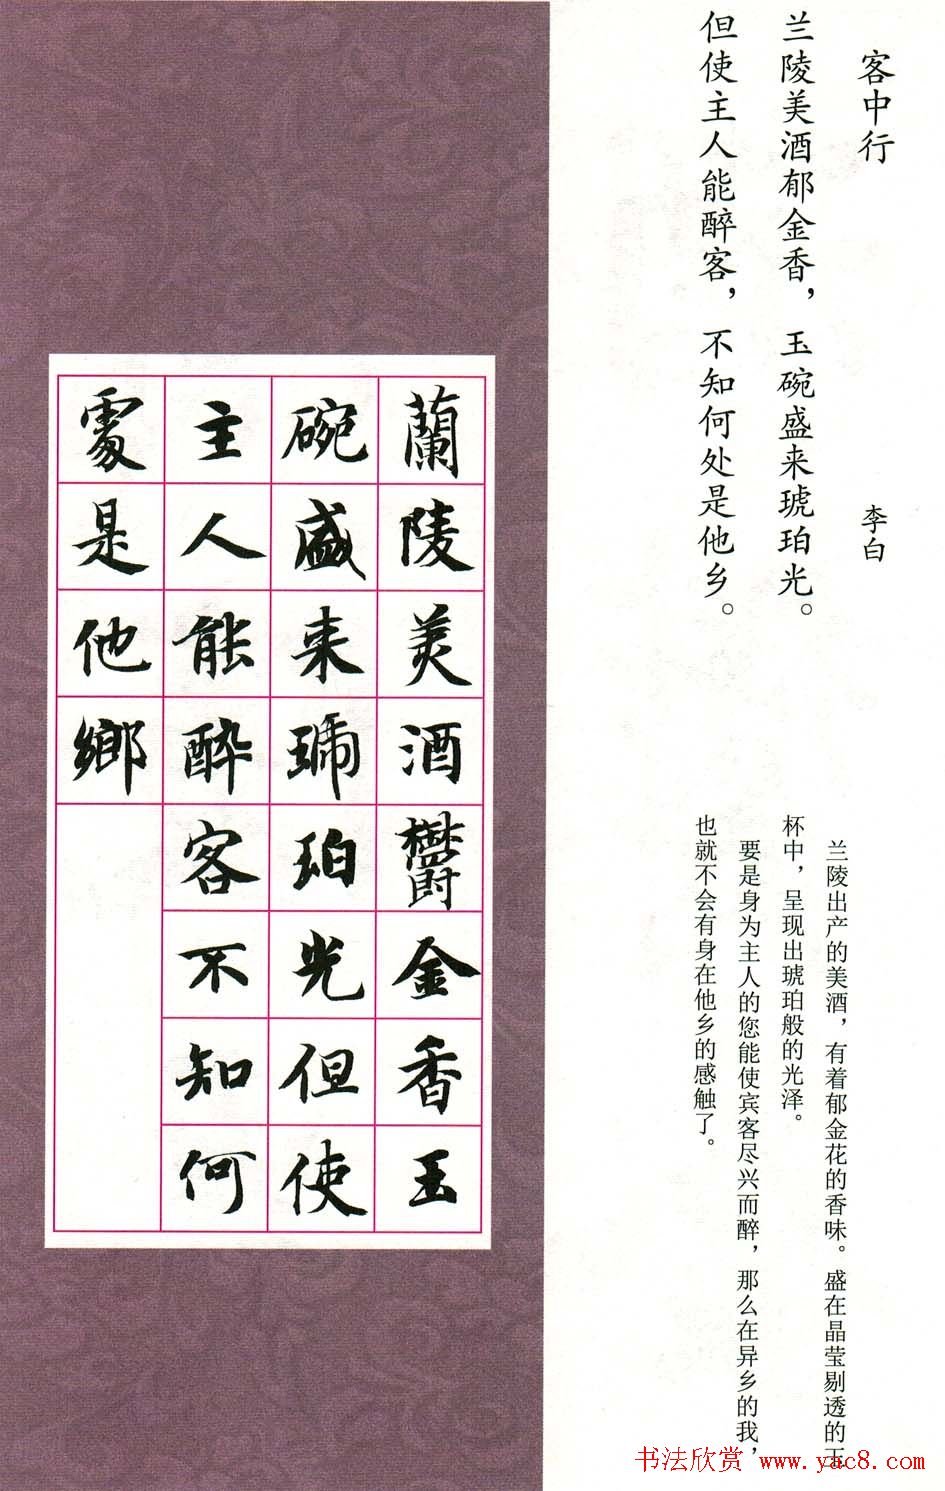 客中行
李白
兰陵美酒郁金香，玉碗盛来琥珀光。
但使主人能醉客，不知何处是他乡。
兰陵出产的美酒，有着郁金花的香味。盛在晶莹剔透的玉
杯中，呈现出琥珀般的光泽。
要是身为主人的您能使宾客尽兴而醉，那么在异乡的我，
也就不会有身在他乡的感触了。
蘭陵美酒鬱金香玉
碗盛来琥珀光但使
主人能醉客不知何
處是他鄉
书法欣赏 www.yac8.com